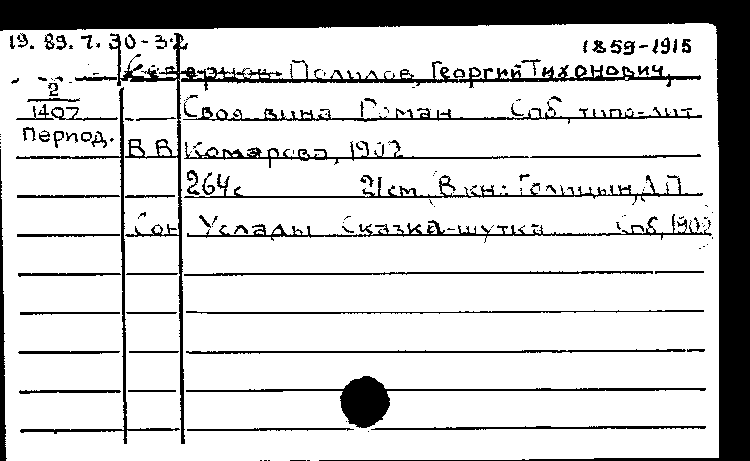 19. 89. 7. 30-32 1859-1915
Северцев-Полилов, Георгий Тихонович,
2
1407 Своя вина Роман Спб, типо-лит
Период. В.В. Комарова, 1902
264с 21см (В кн.: Голицын, Д.П.
Сон Услады Сказка-шутка Спб, 1902)